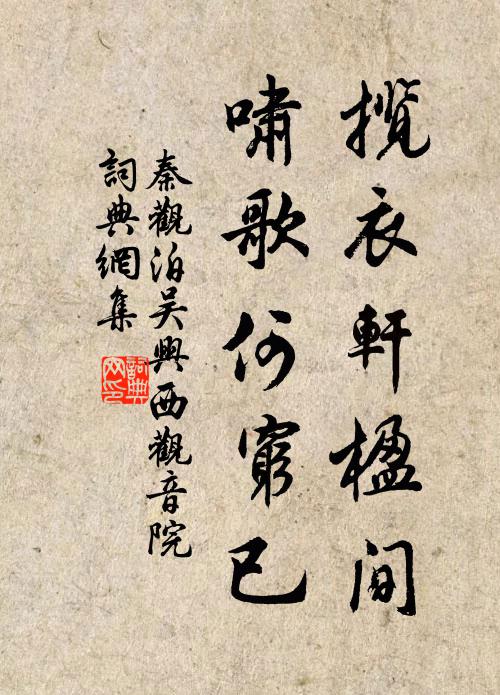 揽衣軒楹间
嘯歌何窮已
秦觀泊吴興西觀音院
詞典網集
詞典网印